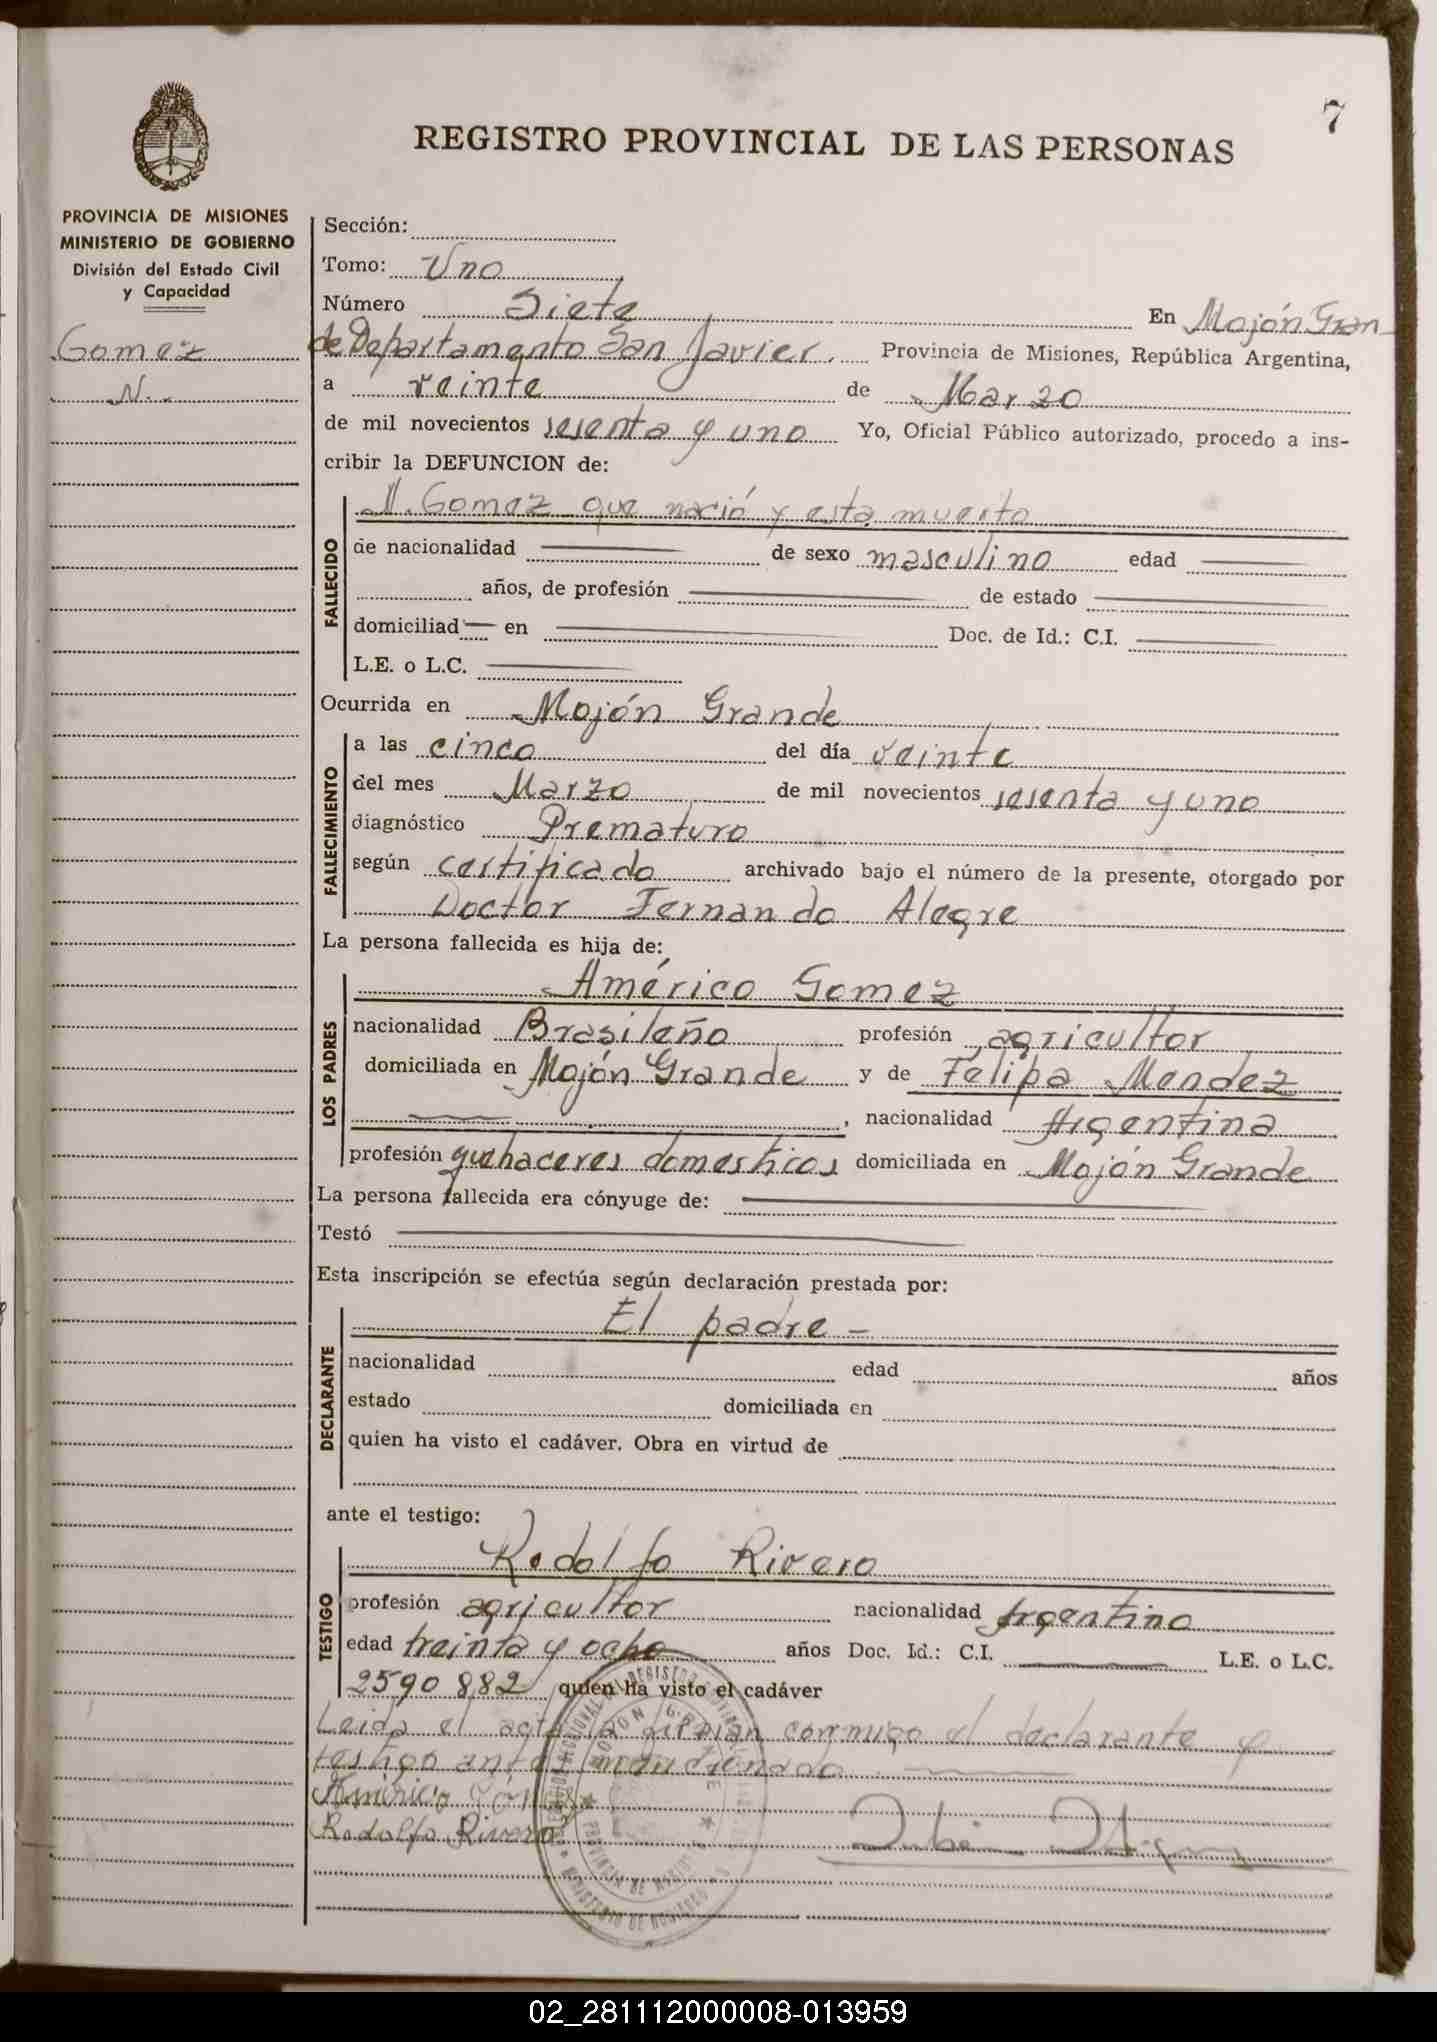 7
REGISTRO PROVINCIAL DE LAS PERSONAS
PROVINCIA DE MISIONES
MINISTERIO DE GOBIERNO
División del Estado Civil
y Capacidad
Gomez
N.
Sección:
Tomo: Uno
Número Siete En Mojón Gran
de Departamento San Javier. Provincia de Misiones, República Argentina,
a veinte de Marzo
de mil novecientos sesenta y uno Yo, Oficial Público autorizado, procedo a ins-
cribir la DEFUNCION de:
FALLECIDO
N. Gomez que nació y esta muerto
de nacionalidad — de sexo masculino edad —
años, de profesión — de estado —
domiciliad — en — Doc. de Id.: C.I. —
L.E. o L.C. —
Ocurrida en Mojón Grande
FALLECIMIENTO
a las cinco del día veinte
del mes Marzo de mil novecientos sesenta y uno
diagnóstico Prematuro
según certificado archivado bajo el número de la presente, otorgado por
Doctor Fernando Alegre
La persona fallecida es hija de:
LOS PADRES
Américo Gomez
nacionalidad Brasileño profesión agricultor
domiciliada en Mojón Grande y de Felipa Mendez
—, nacionalidad Argentina
profesión quehaceres domesticos domiciliada en Mojón Grande
La persona fallecida era cónyuge de: —
Testó —
Esta inscripción se efectúa según declaración prestada por:
DECLARANTE
El padre –
nacionalidad edad años
estado domiciliada en
quien ha visto el cadáver. Obra en virtud de
ante el testigo:
TESTIGO
Rodolfo Rivero
profesión agricultor nacionalidad Argentino
edad treinta y ocho años Doc. Id.: C.I. — L.E. o L.C.
2590882 quien ha visto el cadáver
Leida el acta la firman conmigo el declarante y
testigo ante mencionado —
Américo Gómez
Rodolfo Rivero
PROVINCIA DE MISIONES
MINISTERIO DE GOBIERNO
02_281112000008-013959